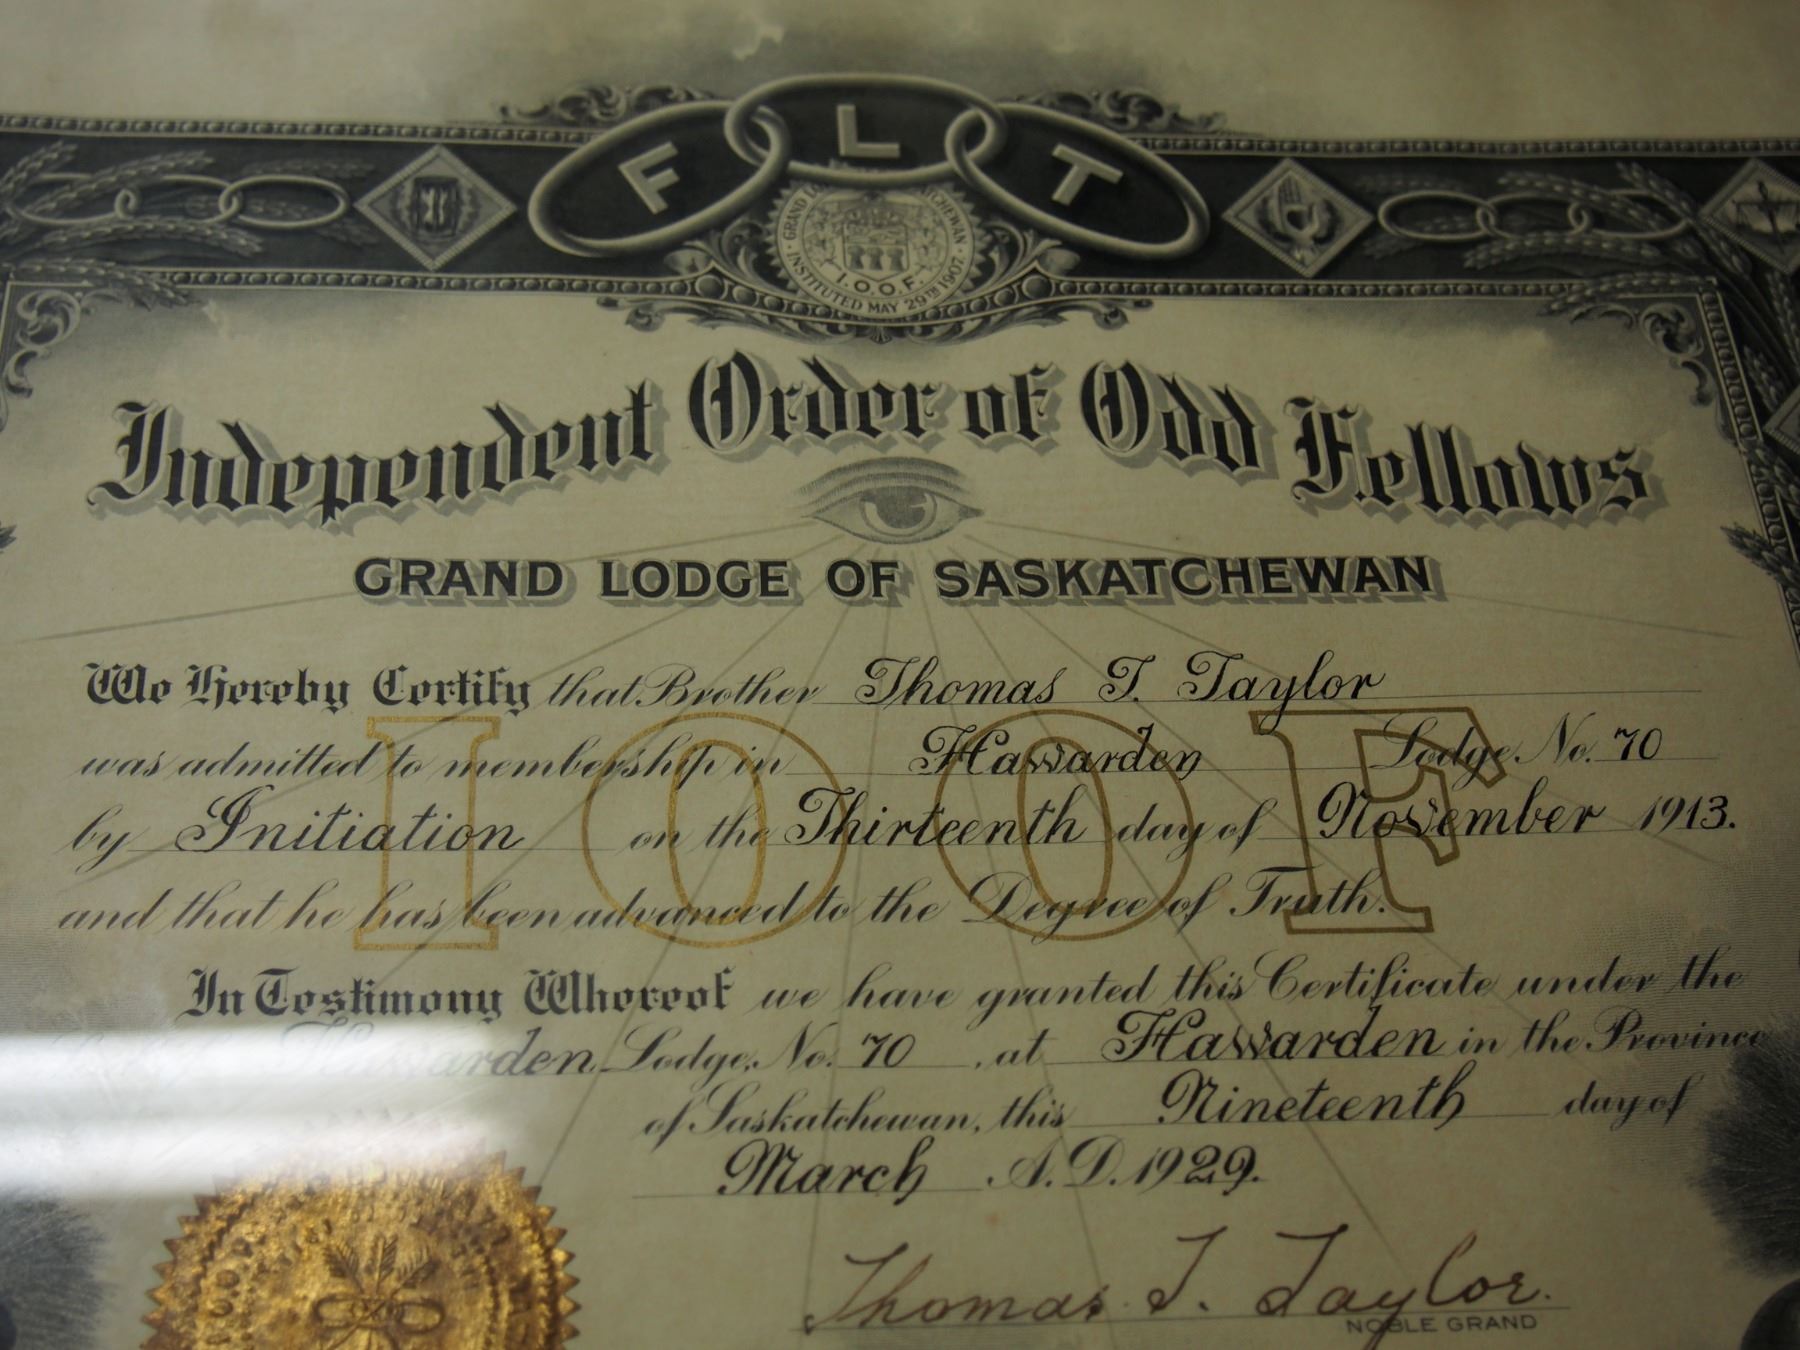 F L T
GRAND LODGE SASKATCHEWAN
I.O.O.F.
INSTITUTED MAY 29TH 1907
Independent Order of Odd Fellows
GRAND LODGE OF SASKATCHEWAN
We Hereby Certify that Brother Thomas T. Taylor
was admitted to membership in Hawarden Lodge No. 70
by Initiation on the Thirteenth day of November 1913.
and that he has been advanced to the Degree of Truth.
I O O F
In Testimony Whereof we have granted this Certificate under the
Hawarden Lodge, No. 70, at Hawarden in the Province
of Saskatchewan, this Nineteenth day of
March A.D. 1929.
Thomas T. Taylor.
NOBLE GRAND